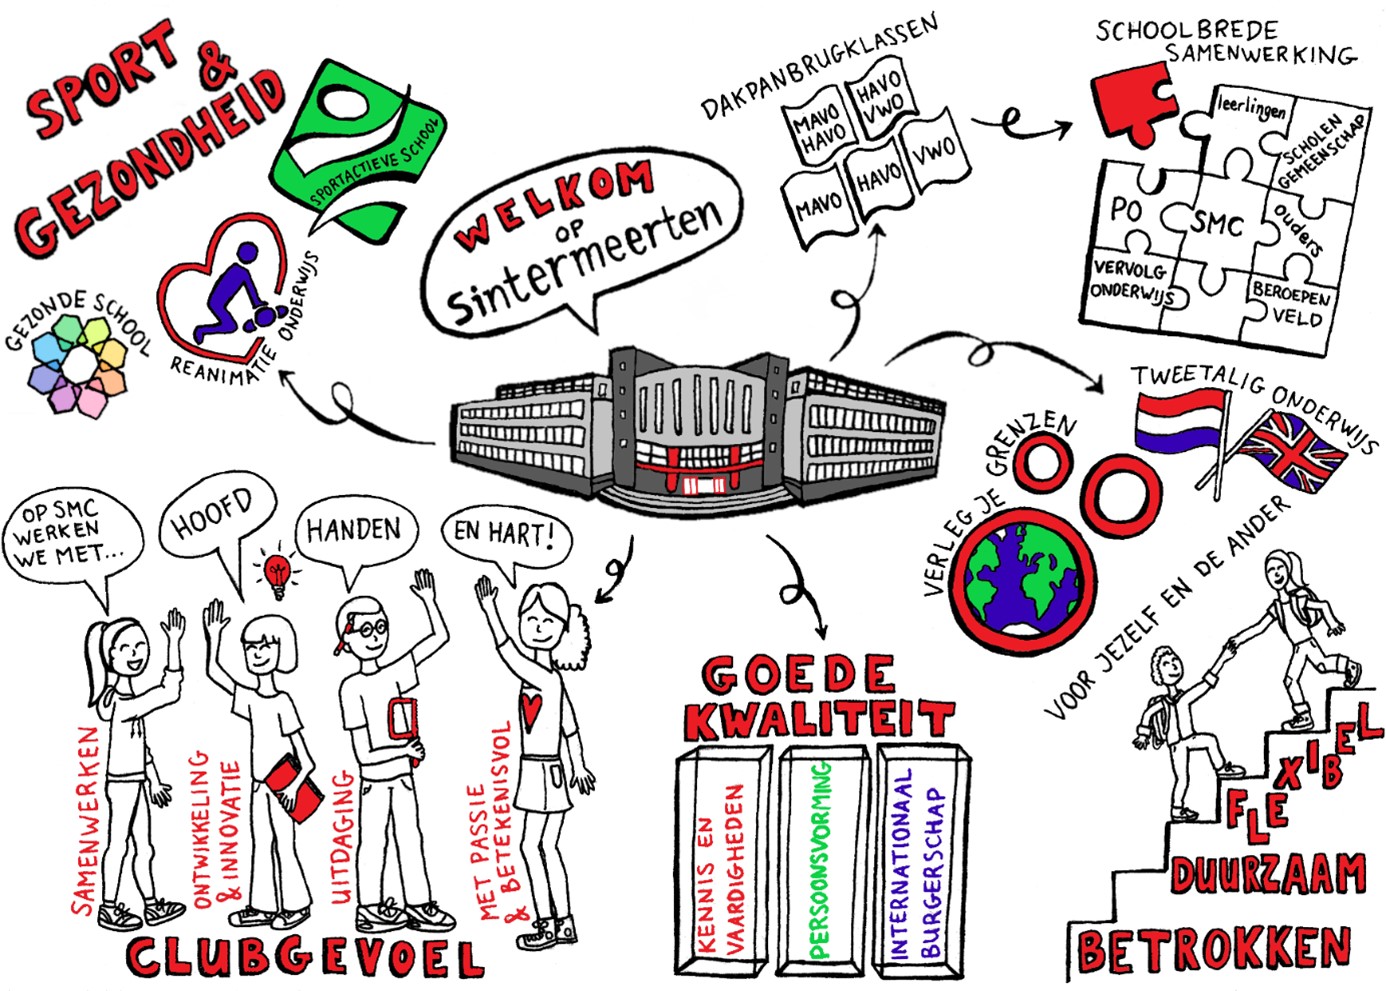 SPORT &
GEZONDHEID
SPORTACTIEVE SCHOOL
REANIMATIE ONDERWIJS
GEZONDE SCHOOL
WELKOM
OP
sintermeerten
DAKPANBRUGKLASSEN
MAVO
HAVO
HAVO
VWO
MAVO
HAVO
VWO
SCHOOLBREDE
SAMENWERKING
leerlingen
SCHOLEN
GEMEENSCHAP
PO
SMC
ouders
VERVOLG
ONDERWIJS
BEROEPEN
VELD
TWEETALIG ONDERWIJS
VERLEG JE GRENZEN
VOOR JEZELF EN DE ANDER
OP SMC
WERKEN
WE MET...
HOOFD
HANDEN
EN HART!
SAMENWERKEN
ONTWIKKELING
& INNOVATIE
UITDAGING
MET PASSIE
& BETEKENISVOL
CLUBGEVOEL
GOEDE
KWALITEIT
KENNIS EN
VAARDIGHEDEN
PERSOONSVORMING
INTERNATIONAAL
BURGERSCHAP
FLEXIBEL
DUURZAAM
BETROKKEN